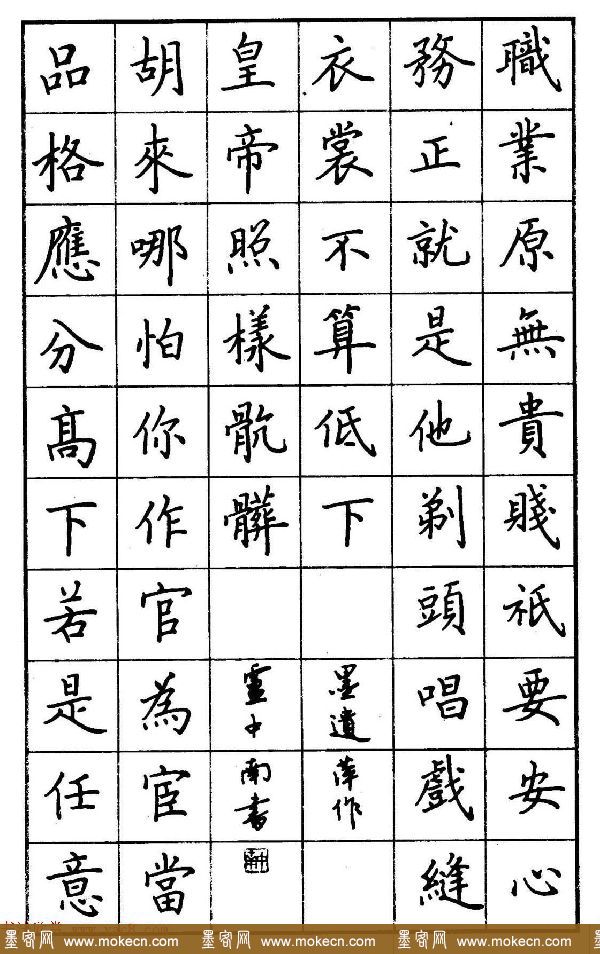 職業原無貴賤祇要安心
務正就是他剃頭唱戲縫
衣裳不算低下
墨遺萍作
品格應分髙下若是任意
胡來哪怕你作官為宦當
皇帝照樣骯髒
盧中南書
墨客网 www.mokecn.com 墨客网 www.mokecn.com 墨客网 www.mokecn.com 墨